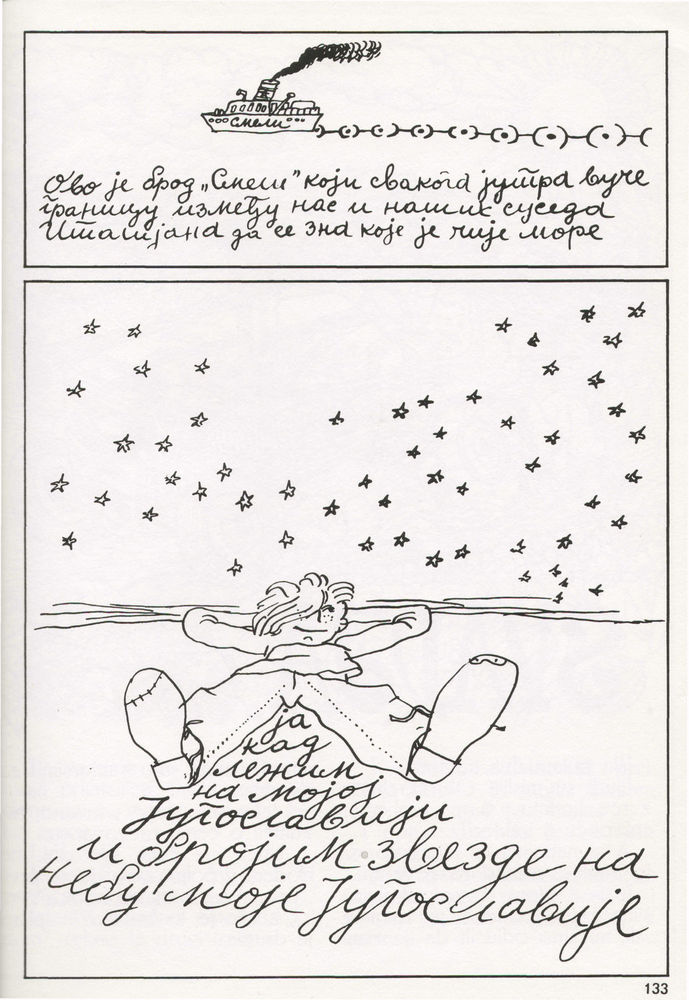 смели
Ово је брод „Смели” који свакога јутра вуче
границу између нас и наших суседа
Италијана да се зна које је чије море
ја
кад
лежим
на мојој
Југославији
и бројим звезде на
небу моје Југославије
133